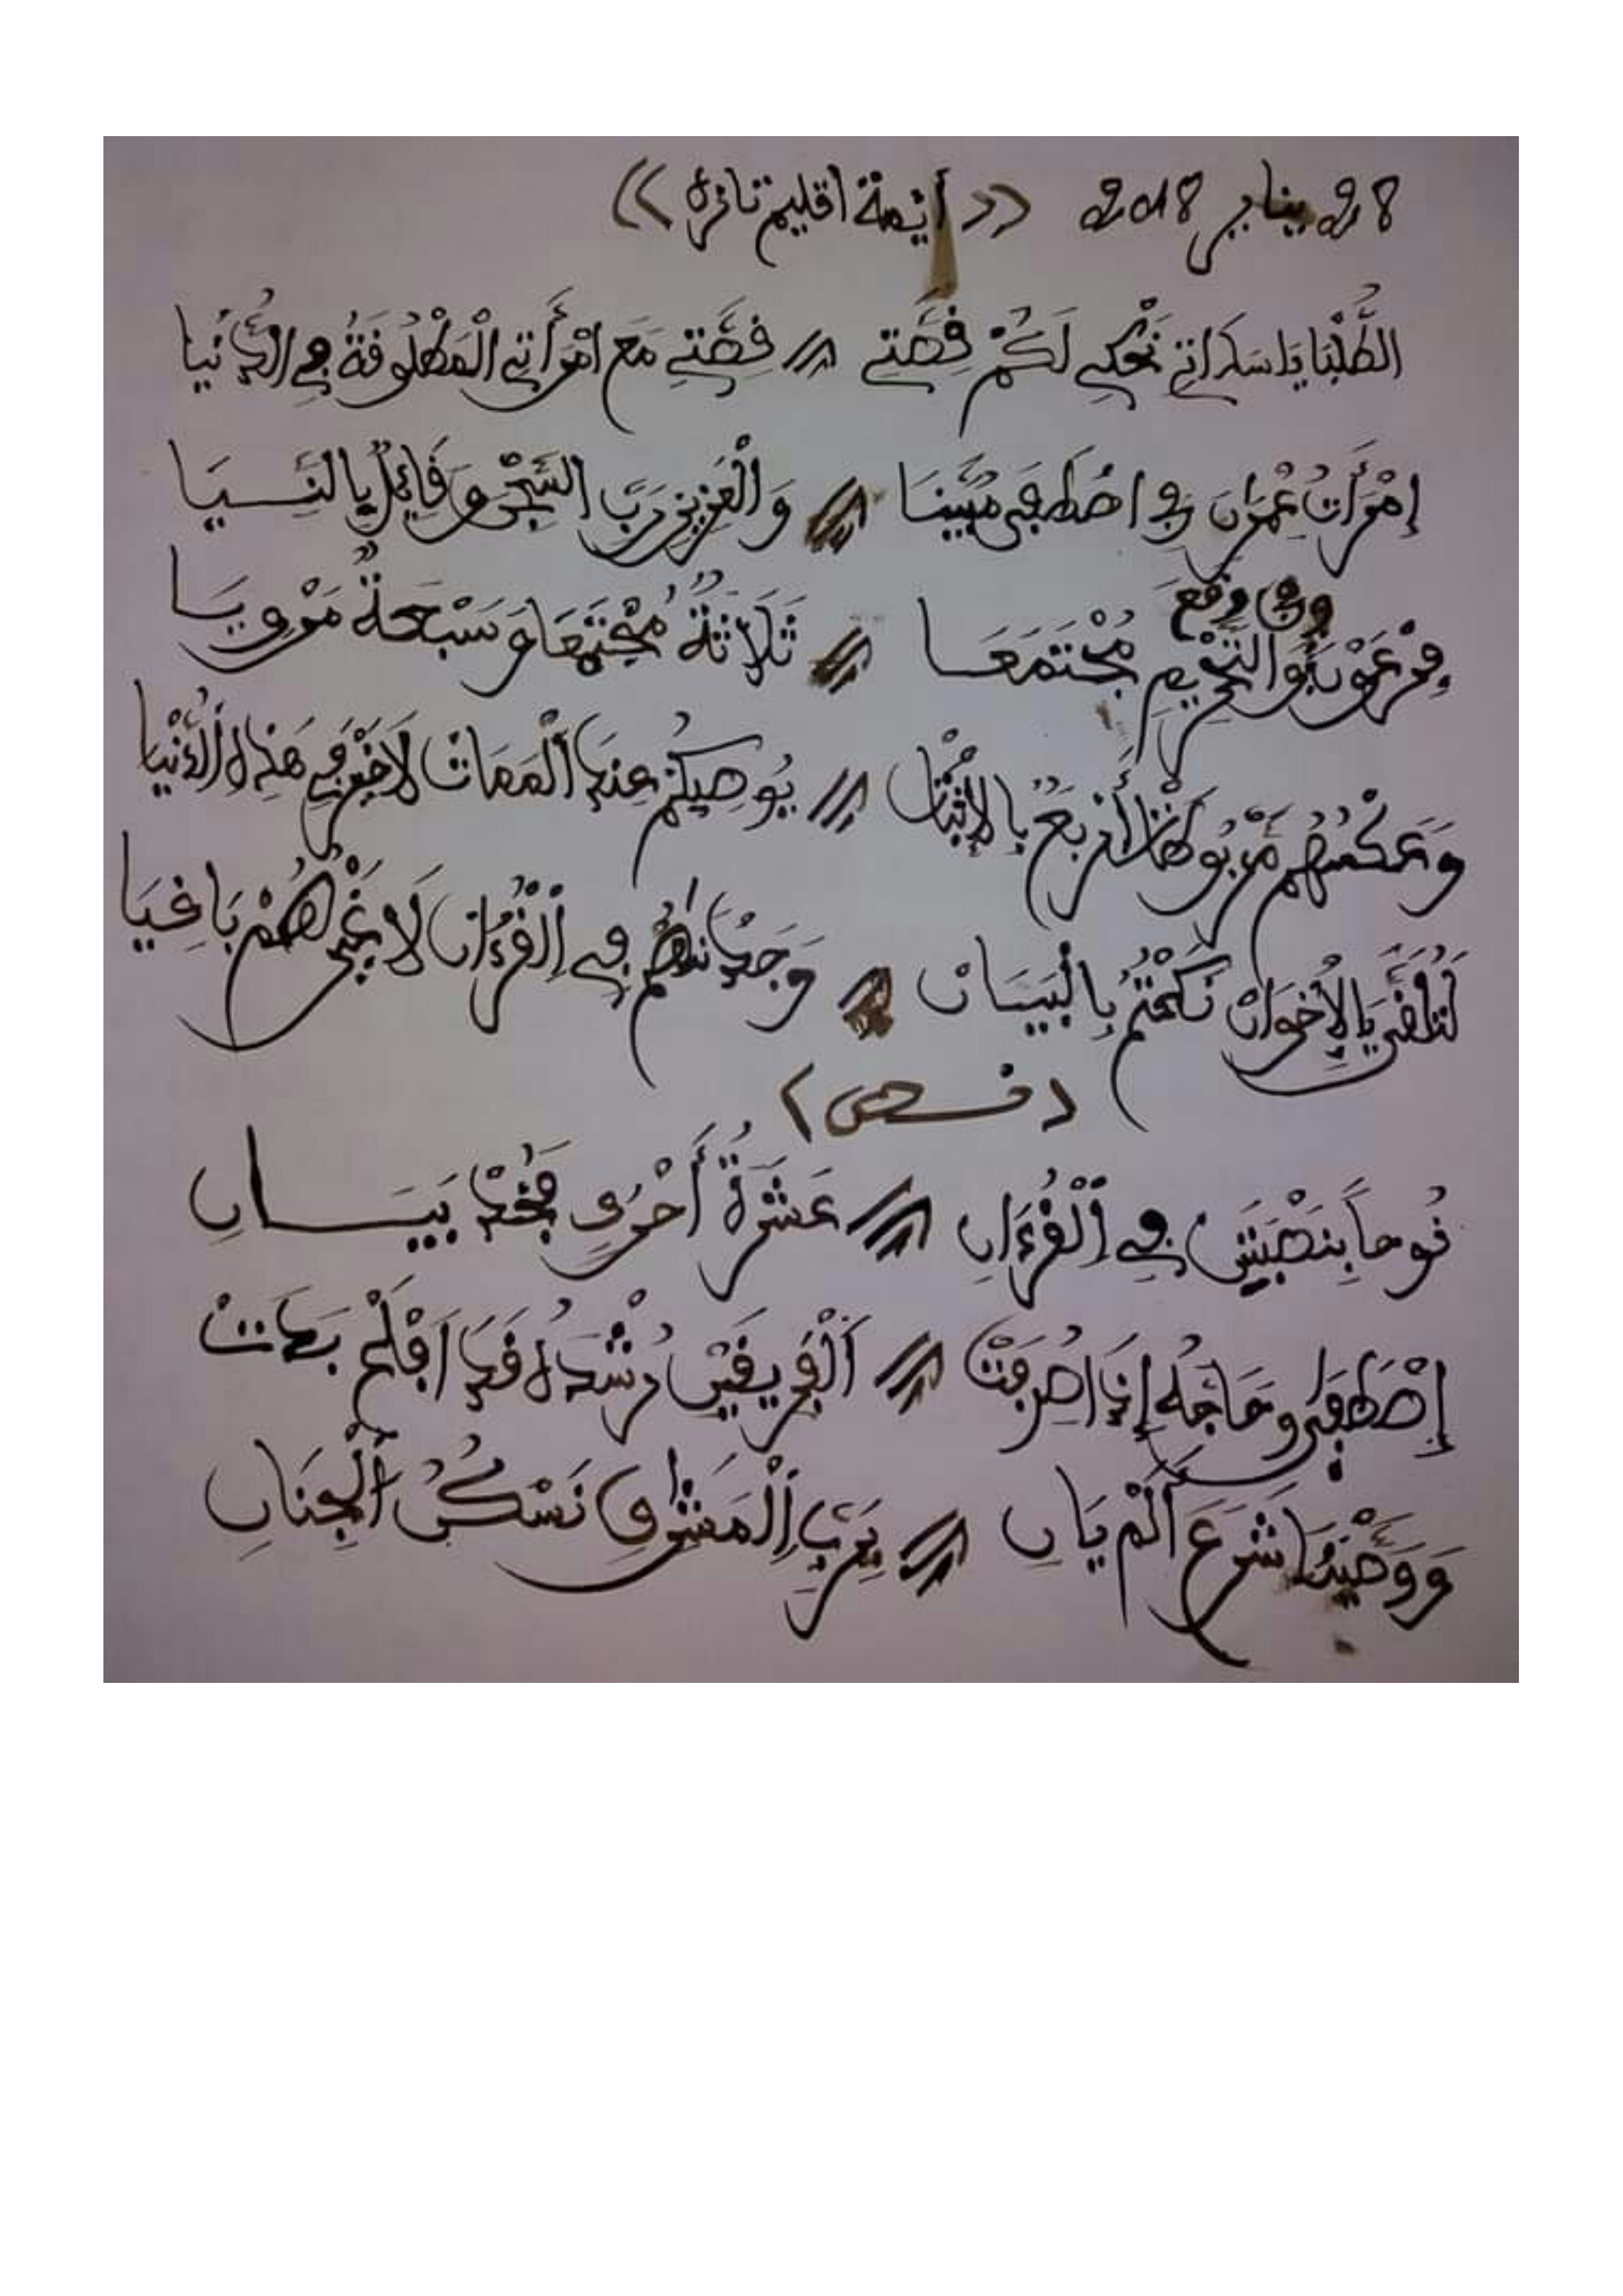 28 يناير 2018 << أئمة اقليم تازة >>
الطُّلْبَا يَا سَدَاتِي نَحْكِي لَكُمْ قِصَّتِي // قِصَّتِي مَع امْرَأَتِي الْمَطْلُوقَةُ فِي الدُّنْيَا
إِمْرَأَتُ عِمْرَانَ فِي اصْطَفَى مُبَيِّنَا // وَالْعَزِيزِ رَبِّ السِّجْنُ وَقَائِلٌ يَا لنَّسِيَا
وفي وقع
فِرْعَوْنَ وَالتَّحْرِيمِ مُجْتَمَعَا // ثَلَاثَةٌ مُجْتَمِعَا وَسَبْعَةٌ مَرْوِيَا
وَعَكْسُهُم مَرْبُوطَةٌ أَرْبَعٌ بِالإِثْنَان // يُوصِيكُمْ عِندَ الْمَمَاتْ لَا خَيْرَ فِي هَذِهِ الدُّنْيَا
يَا الإِخْوَانْ نَخْتَمُ بِالْبَيَانْ // وَجَدْنَاهُم فِي الْقُرْءَانْ لَا غَيْرُهُمْ بَاقِيَا
(نص)
نُوحاً بِنَصْبَيْنِ فِي الْقُرْءَانِ // عَشَرَةٌ أَحْرُفٍ فَخُذْ بَيَانِ
إِصْطَفَى وَحَاجَّهُ إِذَا صُرِفَتْ // الْفَرِيقَيْنِ رُشْدَهُ قَدَ افْلَحَ بَدَتْ
وَوَصَّيْنَا شَرَعَ أَلَمْ يَانِ // بِرَبِّ الْمَشْرِقِ نَسْكُنُ الْجِنَانِ